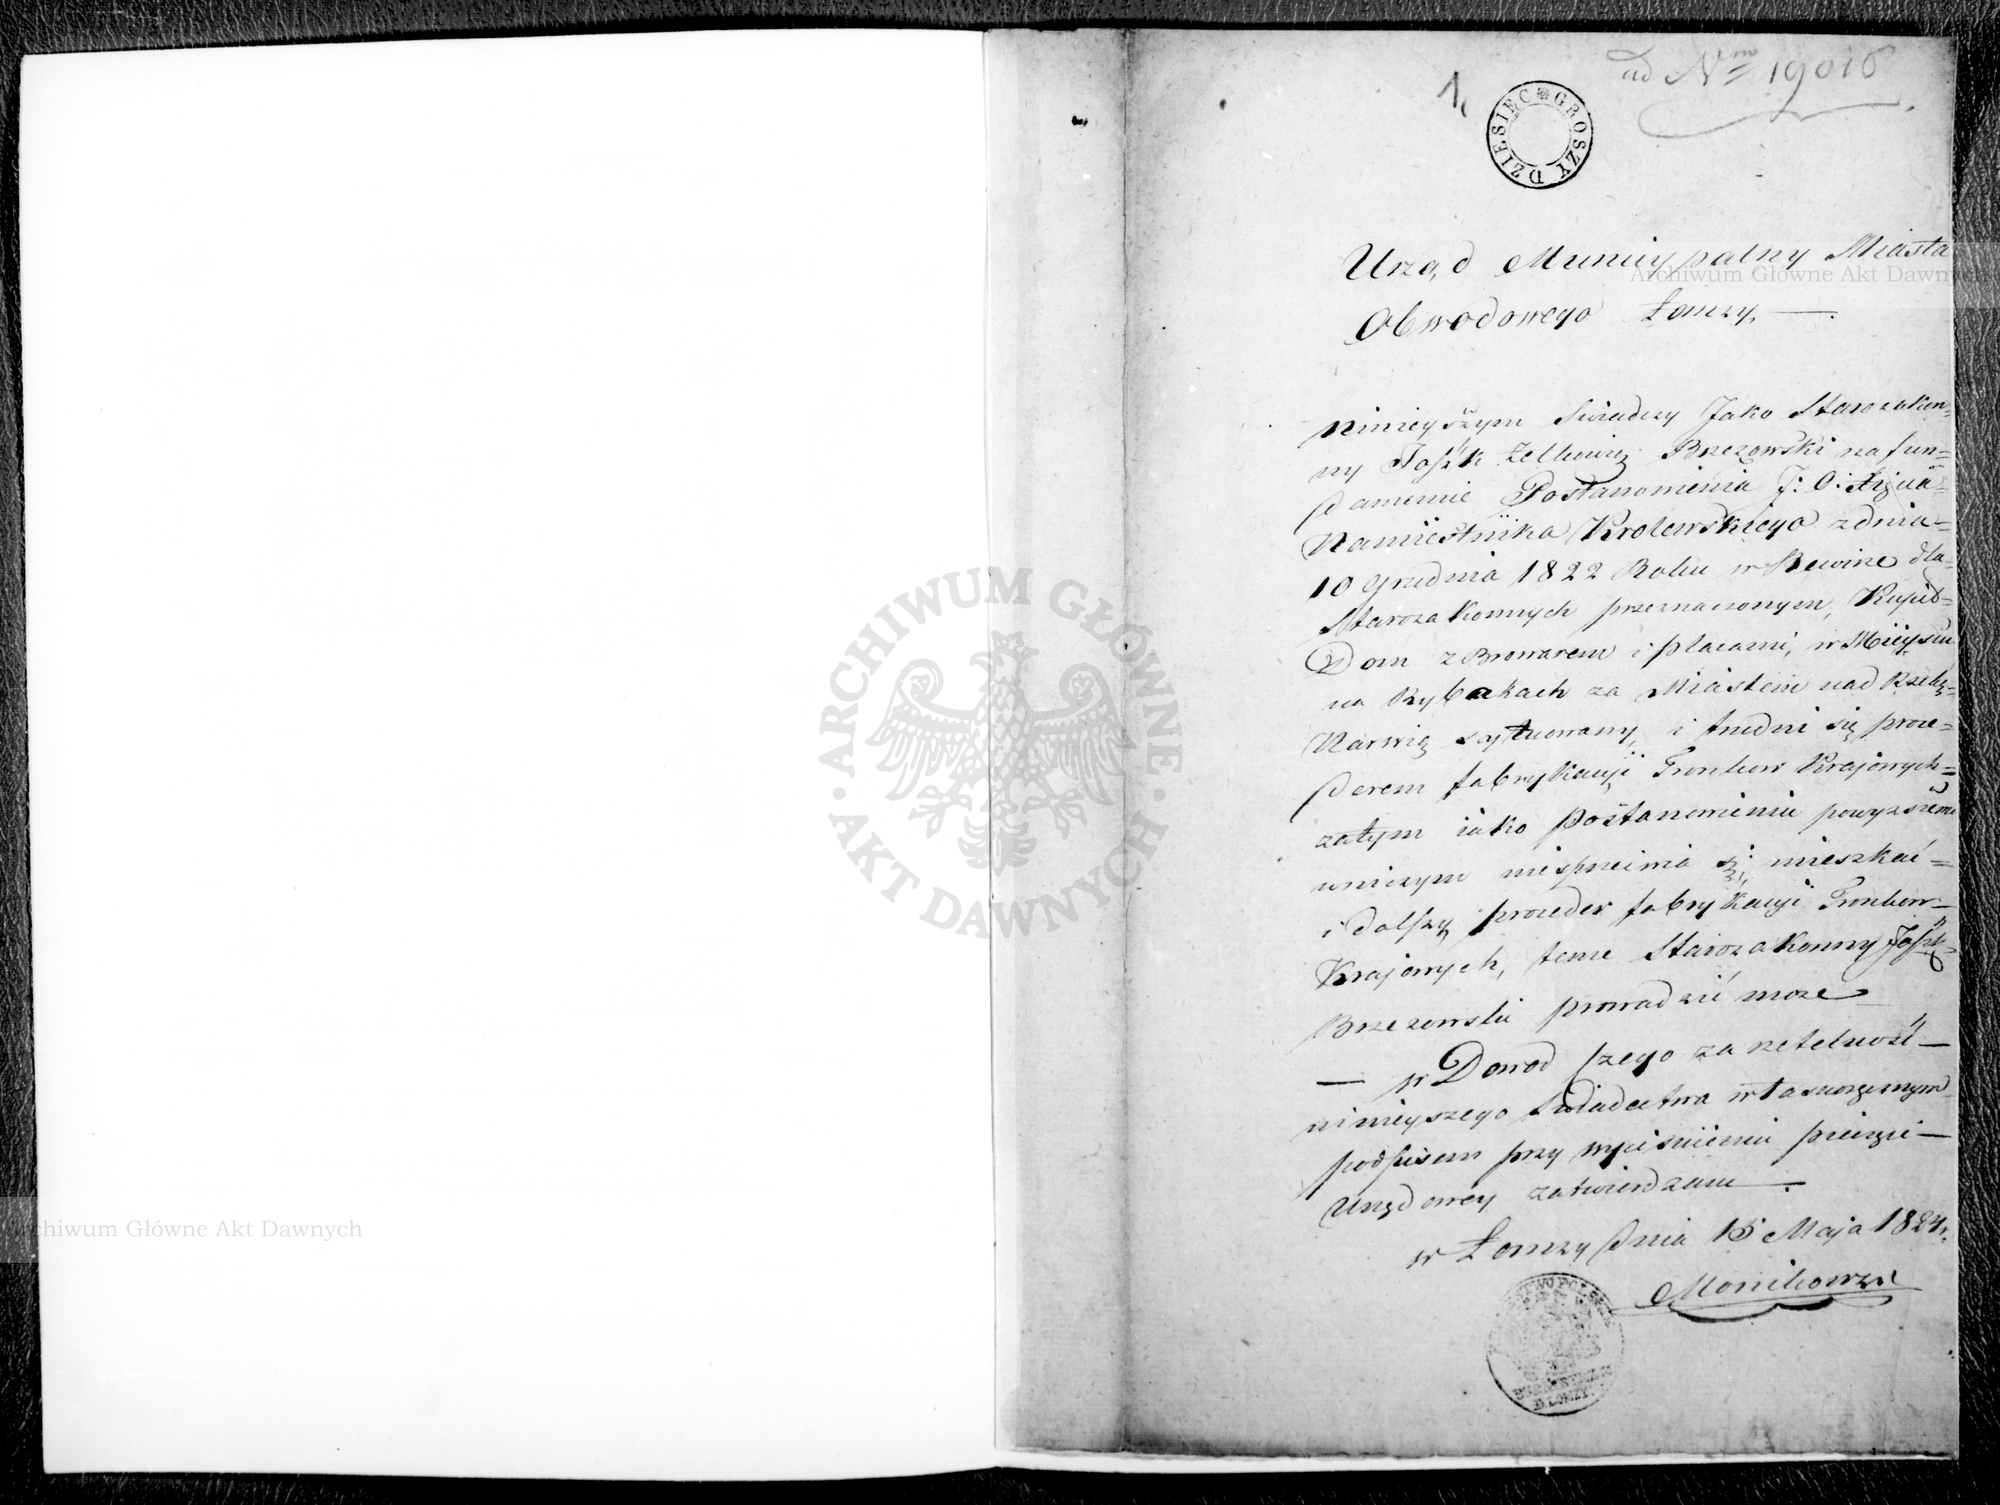 ad Nrm 19016
1.
DZIESIĘC GROSZY
Urząd Municypalny Miasta
Obwodowego Łomzy.
Ninieyszym Swiadczy Jako Starozakon=
ny Josśk Zelkowicz Brzezowski na fun=
damencie Postanowienia J: O: Xięcia
Namiestnika Krolewskiego z dnia
10 Grudnia 1822 Roku w Rewirze dla
Starozakonnych przeznaczonym, Kupił
Dom z Browarem i placami, w Mieyscu
na Rybakach za Miastem nad Rzeką
Narwią sytuowany, i trudni się proce=
derem fabrykacyi Trunkow Krajowych
zatym iako Postanowieniu powyzszemu
w niczym niesprzeciwia się mieszkać
i dalszy proceder fabrykacyi Trunkow
Krajowych, tenze Starozakonny Jośśk
Brzezowski prowadzić moze
w Dowod czego za rzetelność
ninieyszego Swiadectwa własnoręcznym
podpisem przy wyciśnieniu pieczęci
Urzędowey zatwierdzam.
w Łomzy dnia 15 Maja 1824 r.
ARCHIWUM GŁÓWNE AKT DAWNYCH
Archiwum Główne Akt Dawnych
Archiwum Główne Akt Dawnych